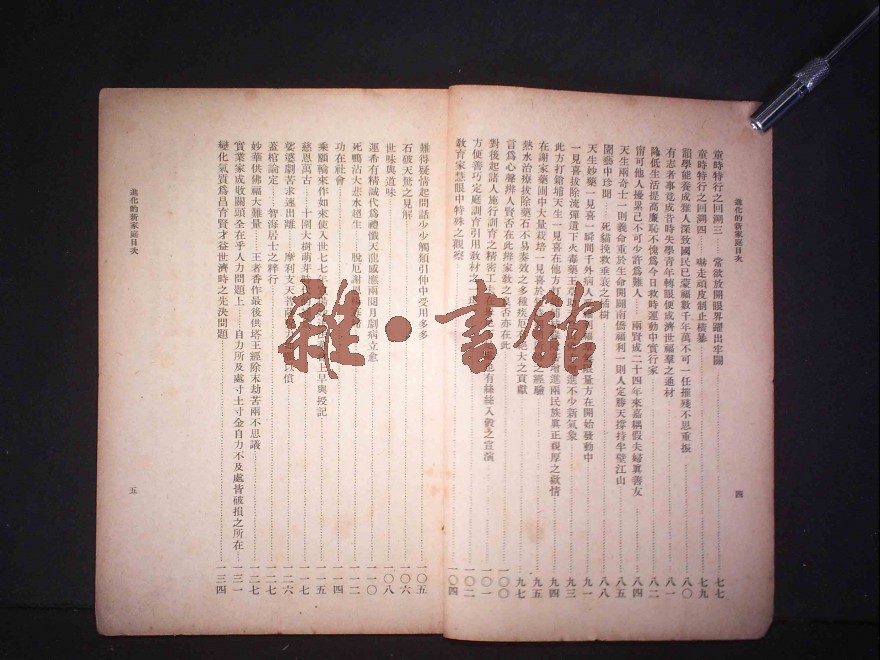 進化的新家庭目次
四
童時特行之回溯三 常欲放開眼界躍出牢闌 七七
童時特行之回溯四 嚇走頑皮制止橫暴 七九
詔學能養成雅人深致國民已豪福數千年萬不可一任摧殘不思重振 八〇
有志者事竟成昔時失學青年轉眼便成濟世福羣之通材 八一
降低生活提高廉恥不愧爲今日救時運動中實行家 八二
甯可他人擾累己不可少許爲難人 兩賢成二十四年來嘉耦假夫婦眞善友 八四
天生兩奇士一則義命重於生命開闢南僑福利一則人定勝天撐持半壁江山 八五
園藝中珍聞 死貓挽救垂衰之橘樹 八八
天生妙藥一見喜一瞬間千外病人 限量方在開始發動中 九一
一見喜拔除流彈遺下火毒藥王 進不少新氣象 九三
此方打鎗埔天生一見喜在他方 增進兩民族眞正親厚之歡情 九四
在謝家藥圃中大量栽培一見喜於 之經驗 九五
熱水治療拔除藥石不易奏效之多種疾厄 大之貢獻 九七
言爲心聲辨人賢否在此辨家敎之良否亦在此 一〇〇
對後起諸人施行訓育之精密工夫在 也有絲絲入敎之宣演 一〇一
方便善巧定庭訓育引用敎材之一 一〇二
敎育家慧眼中特殊之觀察 一〇四
難得疑情起問話少少觸類引伸中受用多多 一〇五
石破天驚之見解 一〇六
世味與道味 一〇八
運希有精誠代爲禮懺天龍感應兩閱月劇病立愈 一一〇
死鴨沾大悲水超生 脫厄謝 一一二
功在社會 一一四
乘願輪來作如來使人世七七年 上早與授記 一一五
慈恩萬古 十圍大樹萌芽時 一一七
娑婆劇苦求速出離 摩利支天菩薩 以償 一二六
蓋棺論定 智海居士之粹行 一二七
妙華供佛福大難量 王者香作最後供塔王經除末劫苦兩不思議 一二七
實業家成收關頭全在乎人力問題上 自力所及處寸土寸金自力不及處皆破損之所在 一三一
變化氣質爲昌育賢才益世濟時之先決問題 一三四
進化的新家庭目次
五
雜·書館